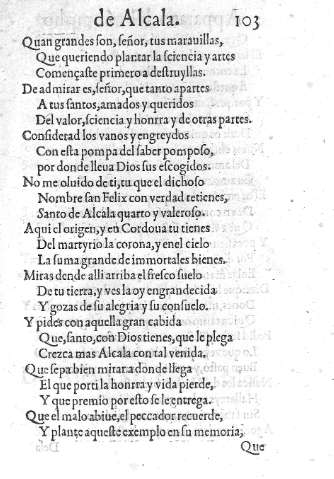 de Alcala. 103
Quan grandes son, señor, tus marauillas,
Que queriendo plantar la sciencia y artes
Començaste primero a destruyllas.
De admirar es, señor, que tanto apartes
A tus santos, amados y queridos
Del valor, sciencia y honrra y de otras partes.
Considerad los vanos y engreydos
Con esta pompa del saber pomposo,
por donde lleua Dios sus escogidos.
No me oluido de ti, tu que el dichoso
Nombre san Felix con verdad retienes,
Santo de Alcala quarto y valeroso.
Aqui el origen, y en Cordoua tu tienes
Del martyrio la corona, y en el cielo
La suma grande de immortales bienes.
Miras dende alli arriba el fresco suelo
De tu tierra, y ves la oy engrandecida
Y gozas de su alegria y su consuelo.
Y pides con aquella gran cabida
Que, santo, con Dios tienes, que le plega
Crezca mas Alcala con tal venida.
Que sepa bien mirar a donde llega
El que por ti la honrra y vida pierde,
Y que premio por esto se le entrega.
Que el malo abiue, el peccador recuerde,
Y plante aqueste exemplo en su memoria,
Que